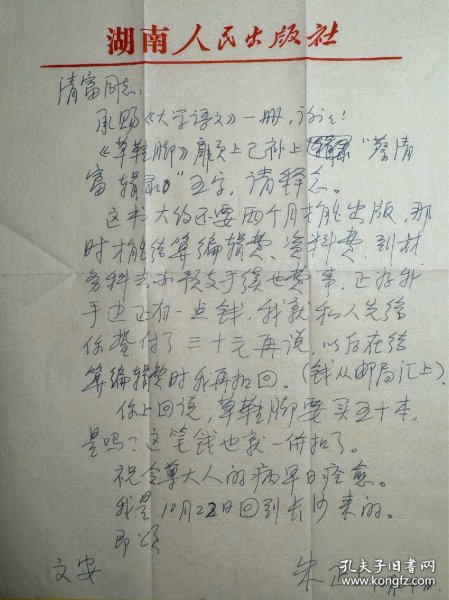 湖南人民出版社
清富同志：
承赐《大学语文》一册，谢谢！
《草鞋脚》扉页上已补上"蔡清
富辑录"五字，请释念。
这书大约还要两个月才能出版，那
时才能结算编辑费、资料费，到财
务科去办预支手续也费事，正好我
手边正有一点钱，我就私人先给
你垫付了三十元再说，以后在结
算编辑费时我再扣回。（钱从邮局汇上）
你上回说，草鞋脚要买五十本，
是吗？这笔钱也就一併扣了。
祝令尊大人的病早日痊愈。
我是10月22日回到长沙来的。
即颂
文安
朱正
孔夫子旧书网
book.kongfz.com